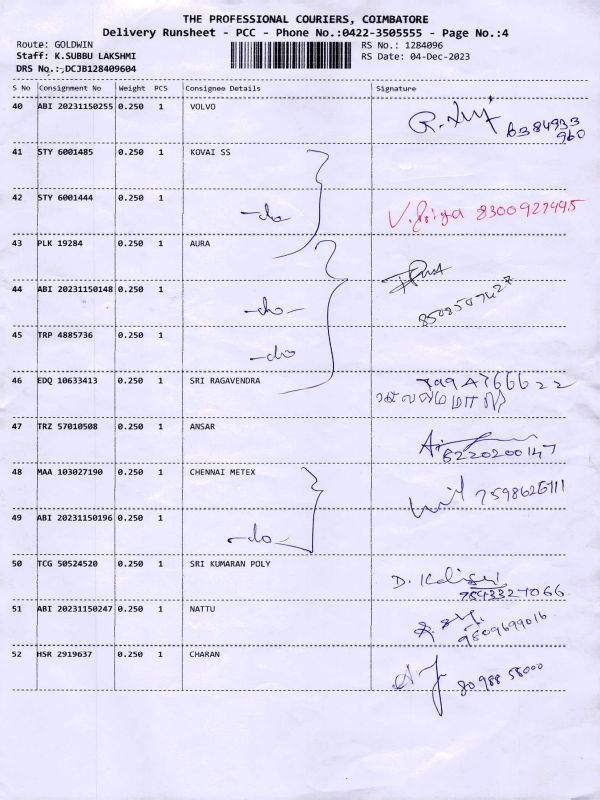 THE PROFESSIONAL COURIERS, COIMBATORE
Delivery Runsheet - PCC - Phone No.:0422-3505555 - Page No.:4
Route: GOLDWIN RS No.: 1284096
Staff: K.SUBBU LAKSHMI RS Date: 04-Dec-2023
DRS No.: DCJB128409604
S No Consignment No Weight PCS Consignee Details Signature
40 ABI 20231150255 0.250 1 VOLVO
41 STY 6001485 0.250 1 KOVAI SS
42 STY 6001444 0.250 1 -do- V. Priya 8300927995
43 PLK 19284 0.250 1 AURA
44 ABI 20231150148 0.250 1 -do-
45 TRP 4885736 0.250 1 -do
46 EDQ 10633413 0.250 1 SRI RAGAVENDRA
47 TRZ 57010508 0.250 1 ANSAR 6220200147
48 MAA 103027190 0.250 1 CHENNAI METEX
49 ABI 20231150196 0.250 1 -do-
50 TCG 50524520 0.250 1 SRI KUMARAN POLY
51 ABI 20231150247 0.250 1 NATTU 9509699016
52 HSR 2919637 0.250 1 CHARAN 80988 58000